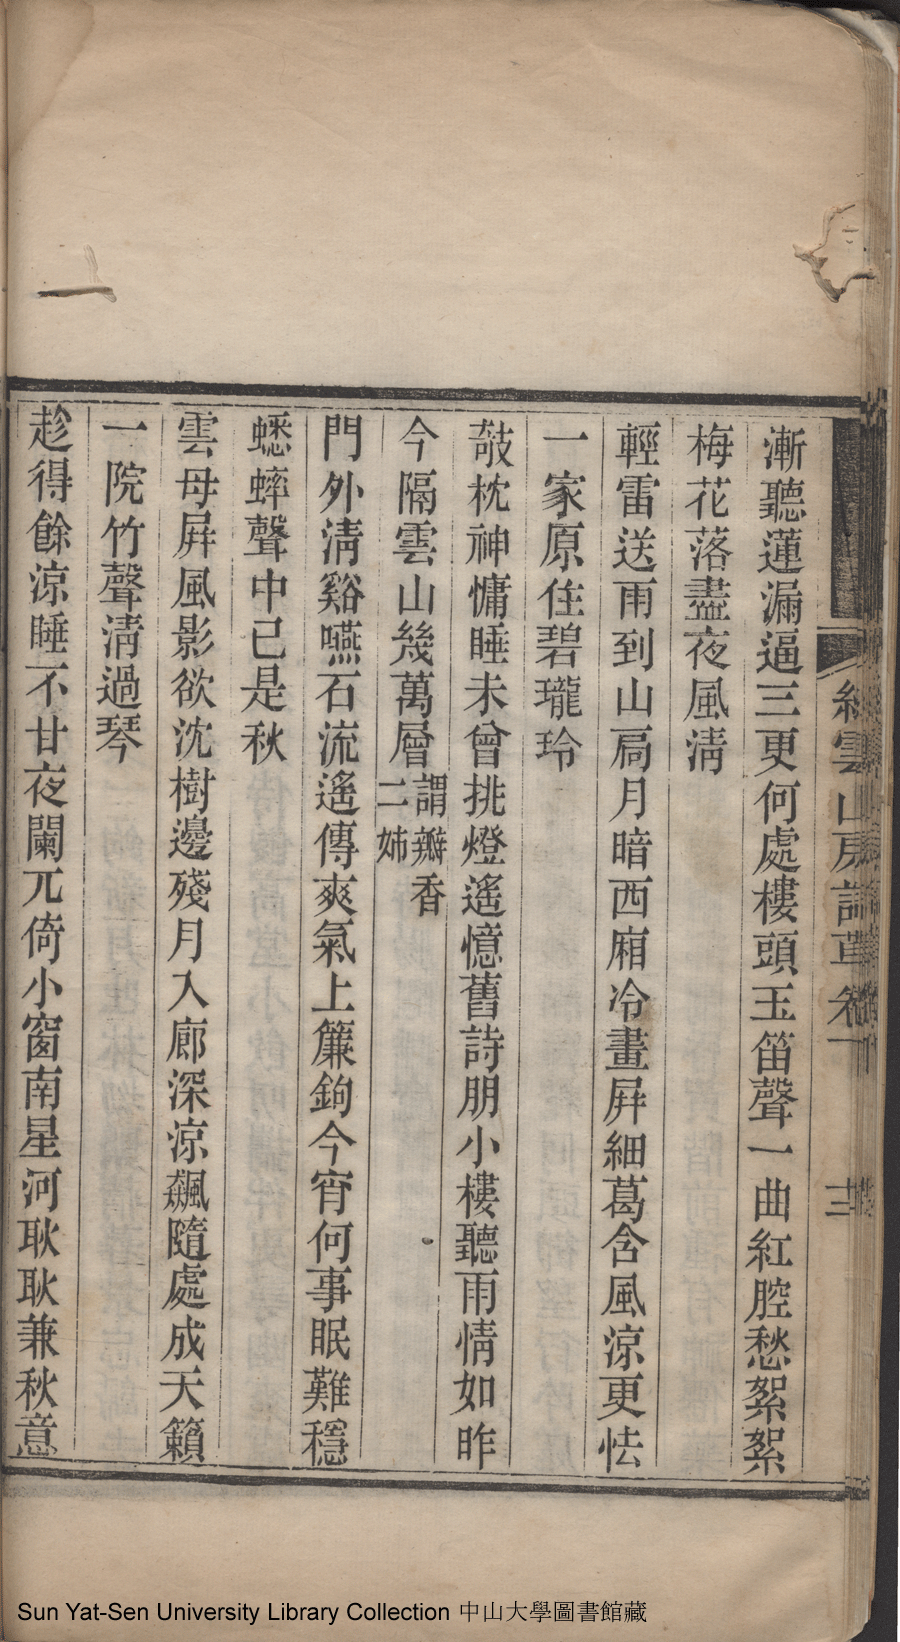 漸聽蓮漏逼三更何處樓頭玉笛聲一曲紅腔愁絮絮
梅花落盡夜風淸
輕雷送雨到山扃月暗西廂冷畫屛細葛含風涼更怯
一家原住碧瓏玲
敧枕神慵睡未曾挑燈遙憶舊詩朋小樓聽雨情如昨
今隔雲山幾萬層謂瓣香二姊
門外淸谿嚥石流遙傳爽氣上簾鉤今宵何事眠難穩
蟋蟀聲中已是秋
雲母屛風影欲沈樹邊殘月入廊深涼飆隨處成天籟
一院竹聲淸過琴
趁得餘涼睡不甘夜闌兀倚小窗南星河耿耿兼秋意
雲山房詩草卷一
Sun Yat-Sen University Library Collection 中山大學圖書館藏